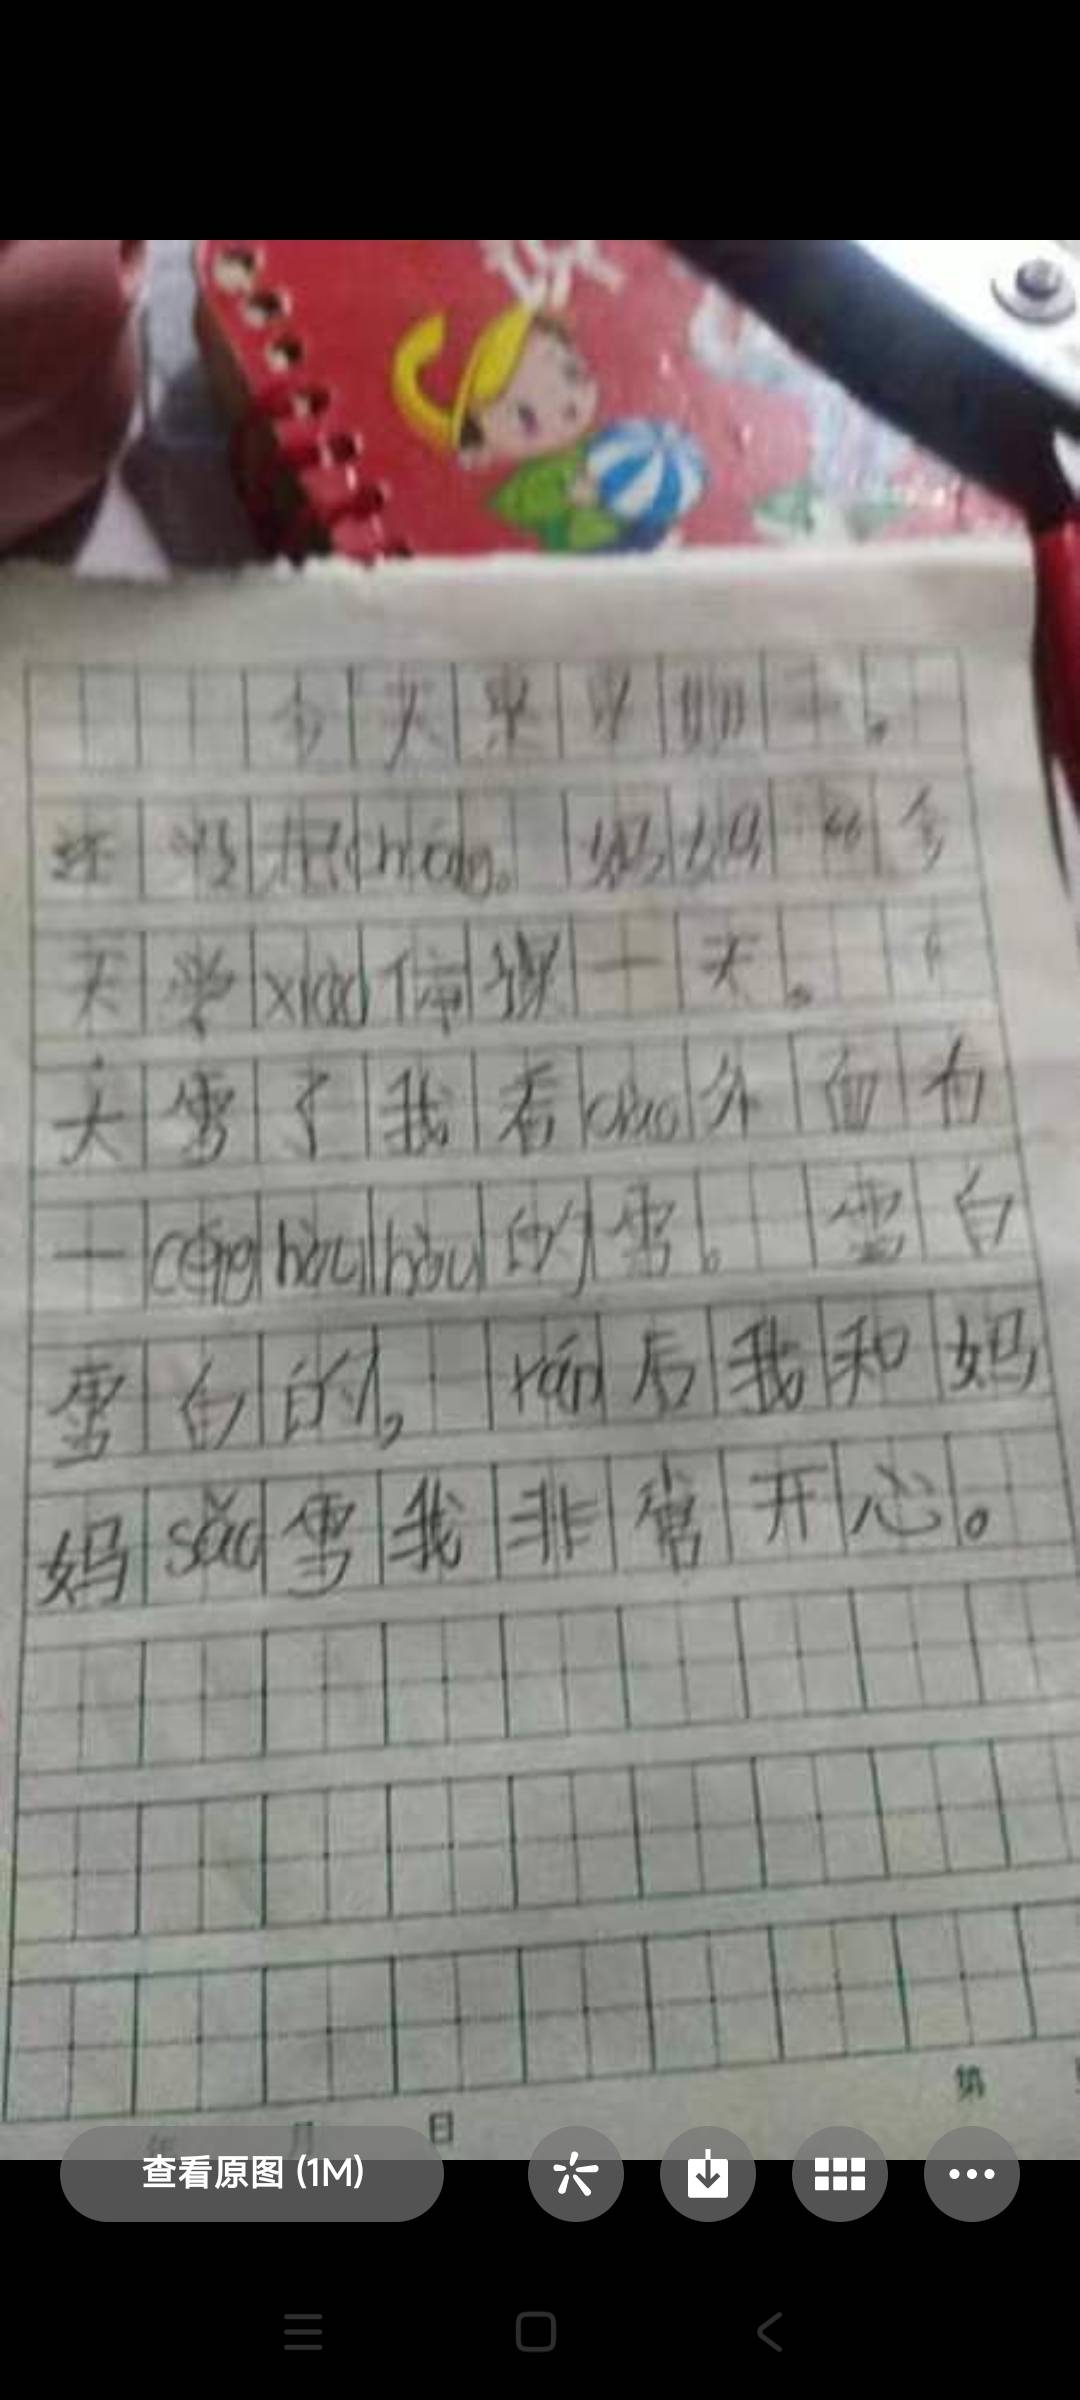 今天早早
还没起chuáng。妈妈 今
天学xiào停课一天。 下
大雪了我看dào外面有
一cénghòuhòu的雪。 雪白
雪白的, rán后我和妈
妈sǎo雪我非常开心。
年 月 日
第
查看原图 (1M)